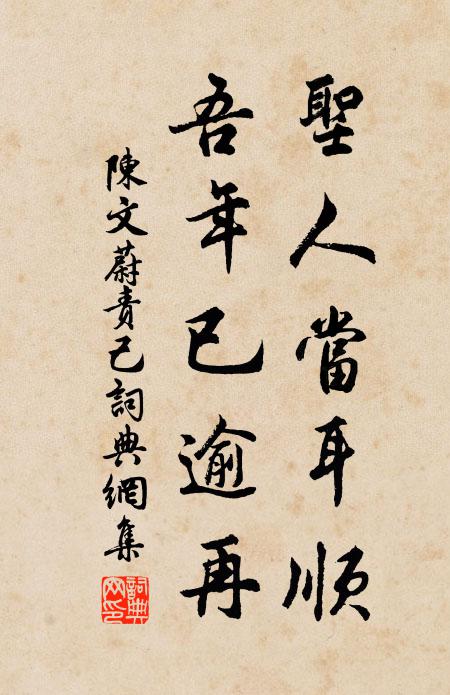 聖人當耳順
吾年已逾再
陳文蔚責己詞典網集
詞典網印